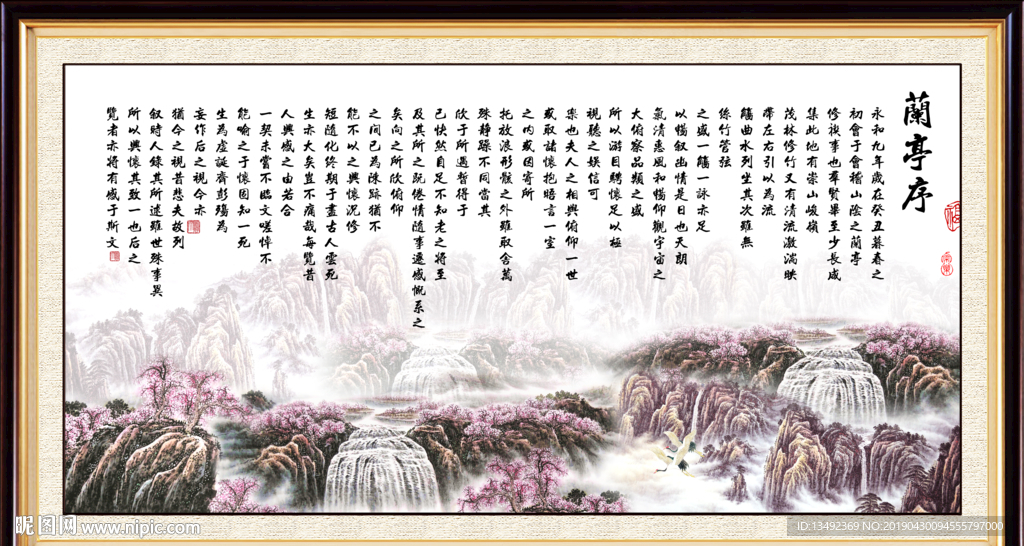 蘭亭序
永和九年歲在癸丑暮春之
初會于會稽山陰之蘭亭
修稧事也羣賢畢至少長咸
集此地有崇山峻領
茂林修竹又有清流激湍映
帶左右引以為流
觴曲水列坐其次雖無
絲竹管弦
之盛一觴一詠亦足
以暢叙幽情是日也天朗
氣清惠風和暢仰觀宇宙之
大俯察品類之盛
所以游目騁懷足以極
視聽之娛信可
樂也夫人之相與俯仰一世
或取諸懷抱晤言一室
之內或因寄所
托放浪形骸之外雖取舍萬
殊静躁不同當其
欣于所遇暫得于
己快然自足不知老之將至
及其所之既倦情隨事遷感慨系之
矣向之所欣俯仰
之间已為陳跡猶不
能不以之興懷況修
短隨化終期于盡古人雲死
生亦大矣豈不痛哉每覽昔
人興感之由若合
一契未嘗不臨文嗟悼不
能喻之于懷固知一死
生為虛誕齊彭殤為
妄作后之視今亦
猶今之視昔悲夫故列
叙時人錄其所述雖世殊事異
所以興懷其致一也后之
覽者亦將有感于斯文
昵图网 www.nipic.com
ID:13492369 NO:20190430094555797000